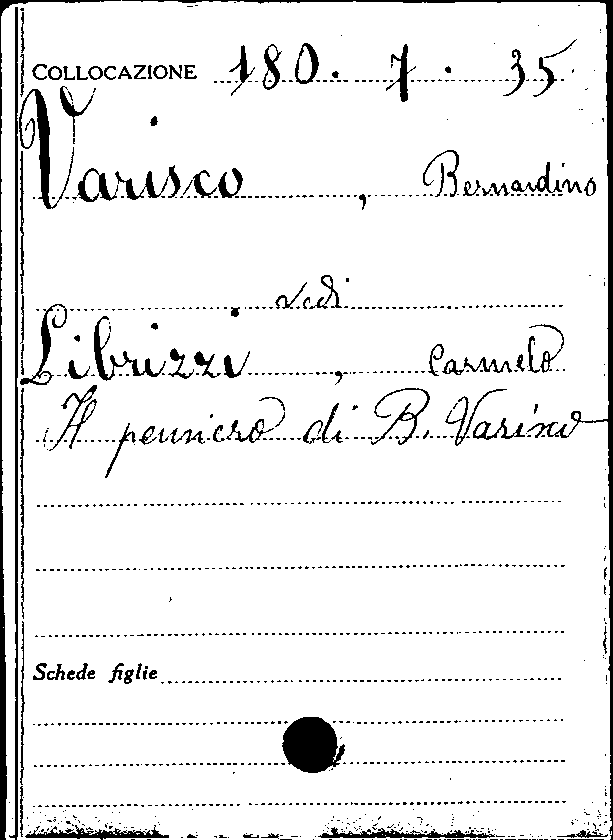 COLLOCAZIONE 180. 7. 35
Varisco, Bernardino
vedi
Librizzi, Carmelo
Il pensiero di B. Varisco
Schede figlie